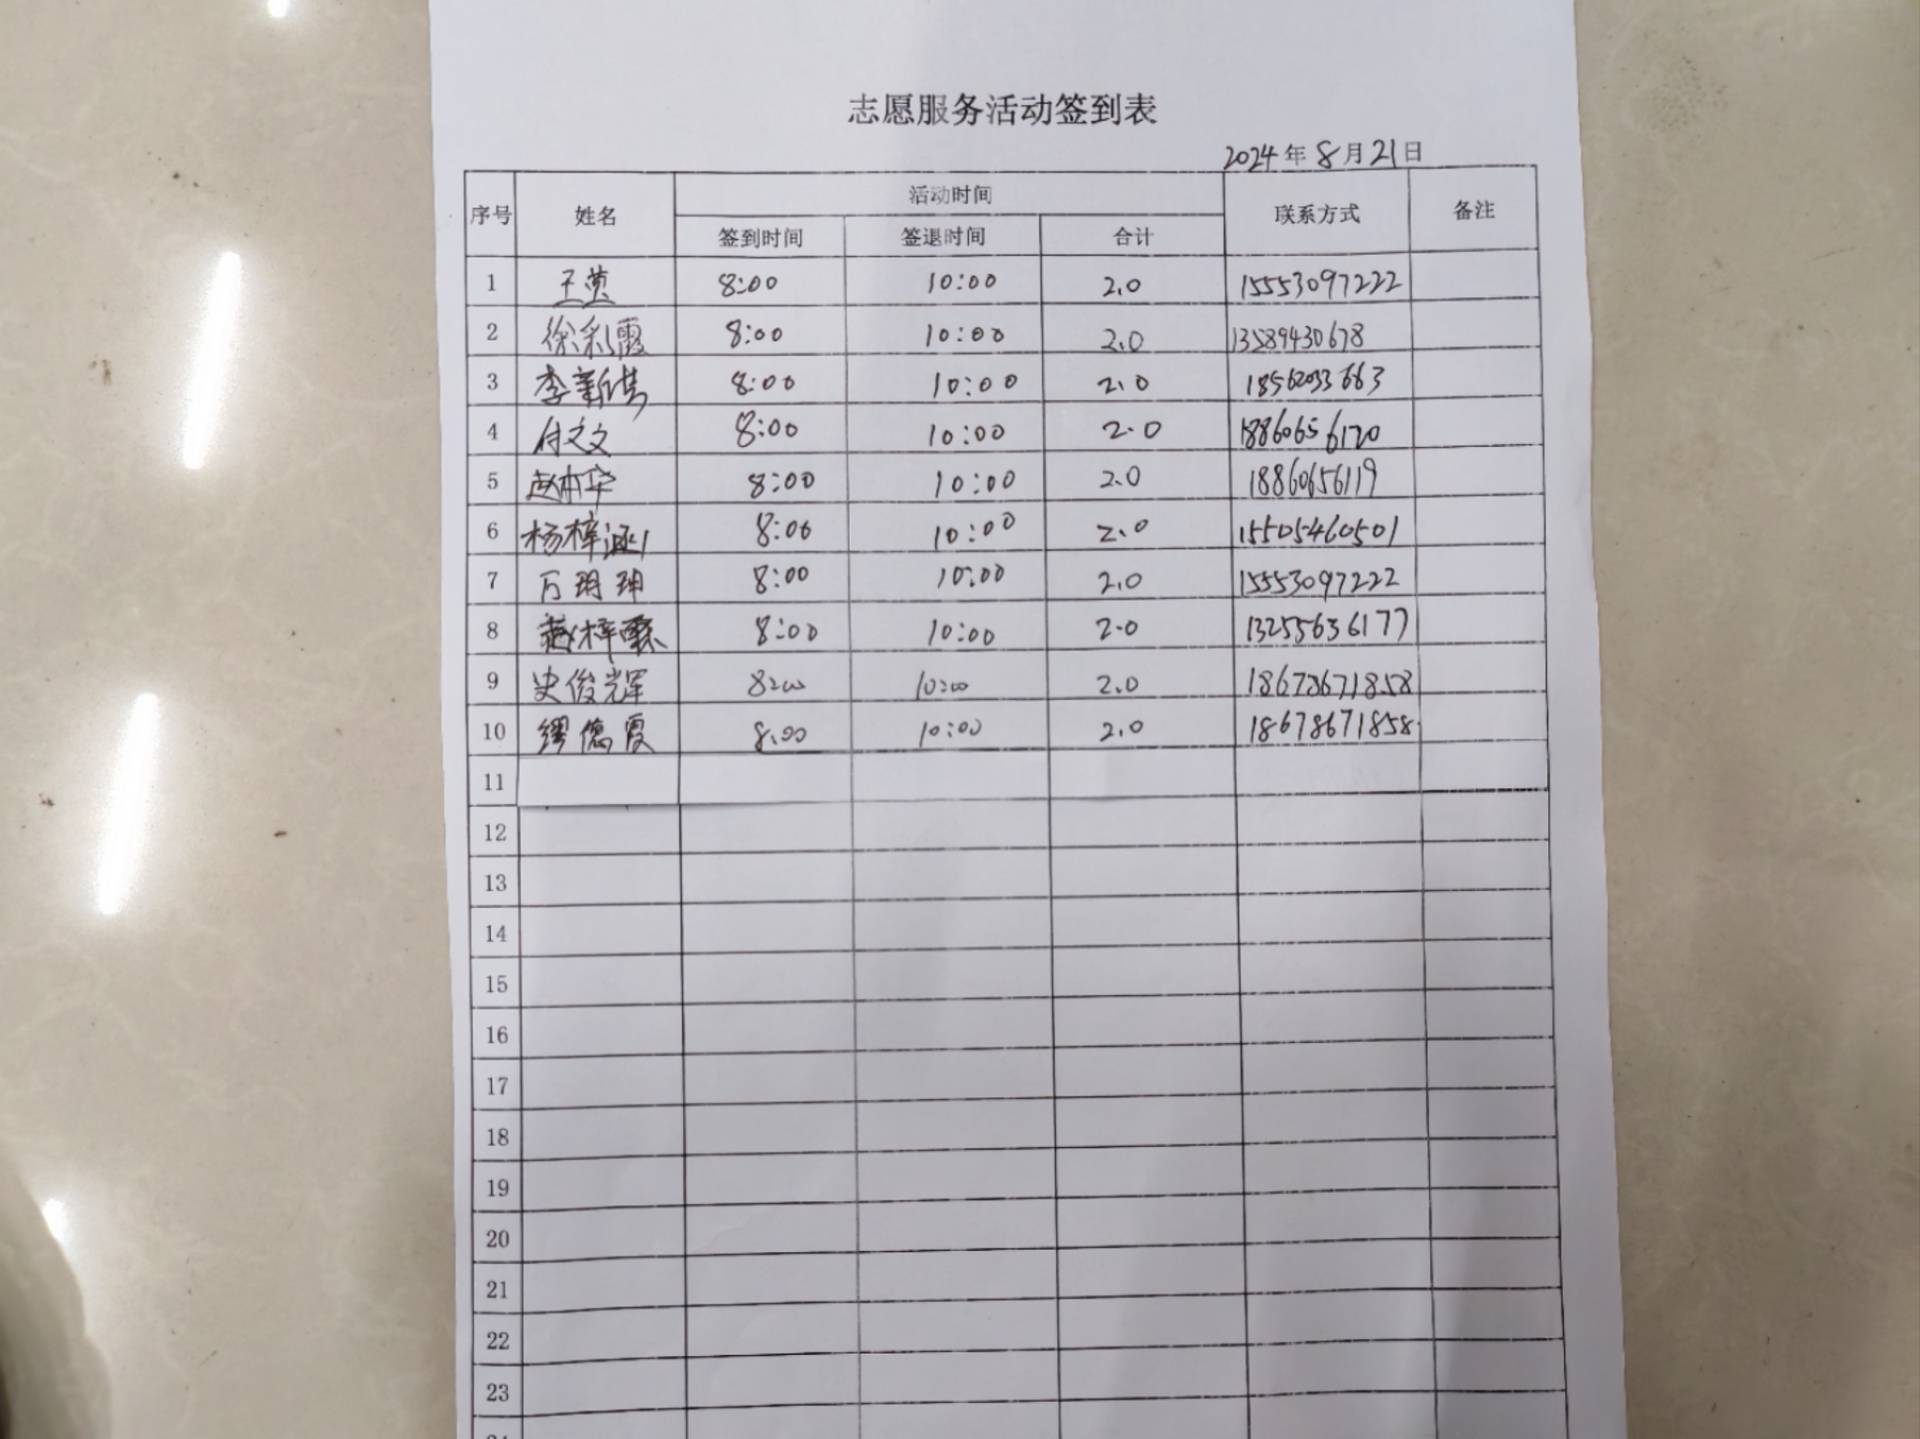 志愿服务活动签到表
2024年8月21日
序号 姓名 活动时间 联系方式 备注
签到时间 签退时间 合计
1 王英 8:00 10:00 2.0 15553097222
2 徐彩霞 8:00 10:00 2.0 13589430678
3 李新 8:00 10:00 2.0 18562033663
4 付文文 8:00 10:00 2.0 18860656120
5 赵本华 8:00 10:00 2.0 18860656119
6 杨梓涵 8:00 10:00 2.0 15505460501
7 万玥珅 8:00 10:00 2.0 15553097222
8 赵梓 8:00 10:00 2.0 13255636177
9 史俊辉 8:00 10:00 2.0 18678671858
10 缪德霞 8:00 10:00 2.0 18678671858
11
12
13
14
15
16
17
18
19
20
21
22
23